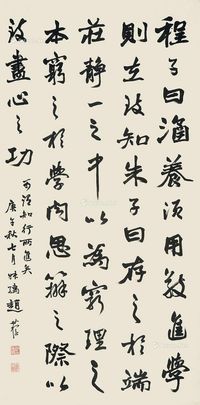 程子曰涵養須用敬進學
則在致知朱子曰存之於端
莊靜一之中以為窮理之
本窮之於學問思辨之際以
致盡心之功
可謂知行兩進矣
庚午秋七月
趙